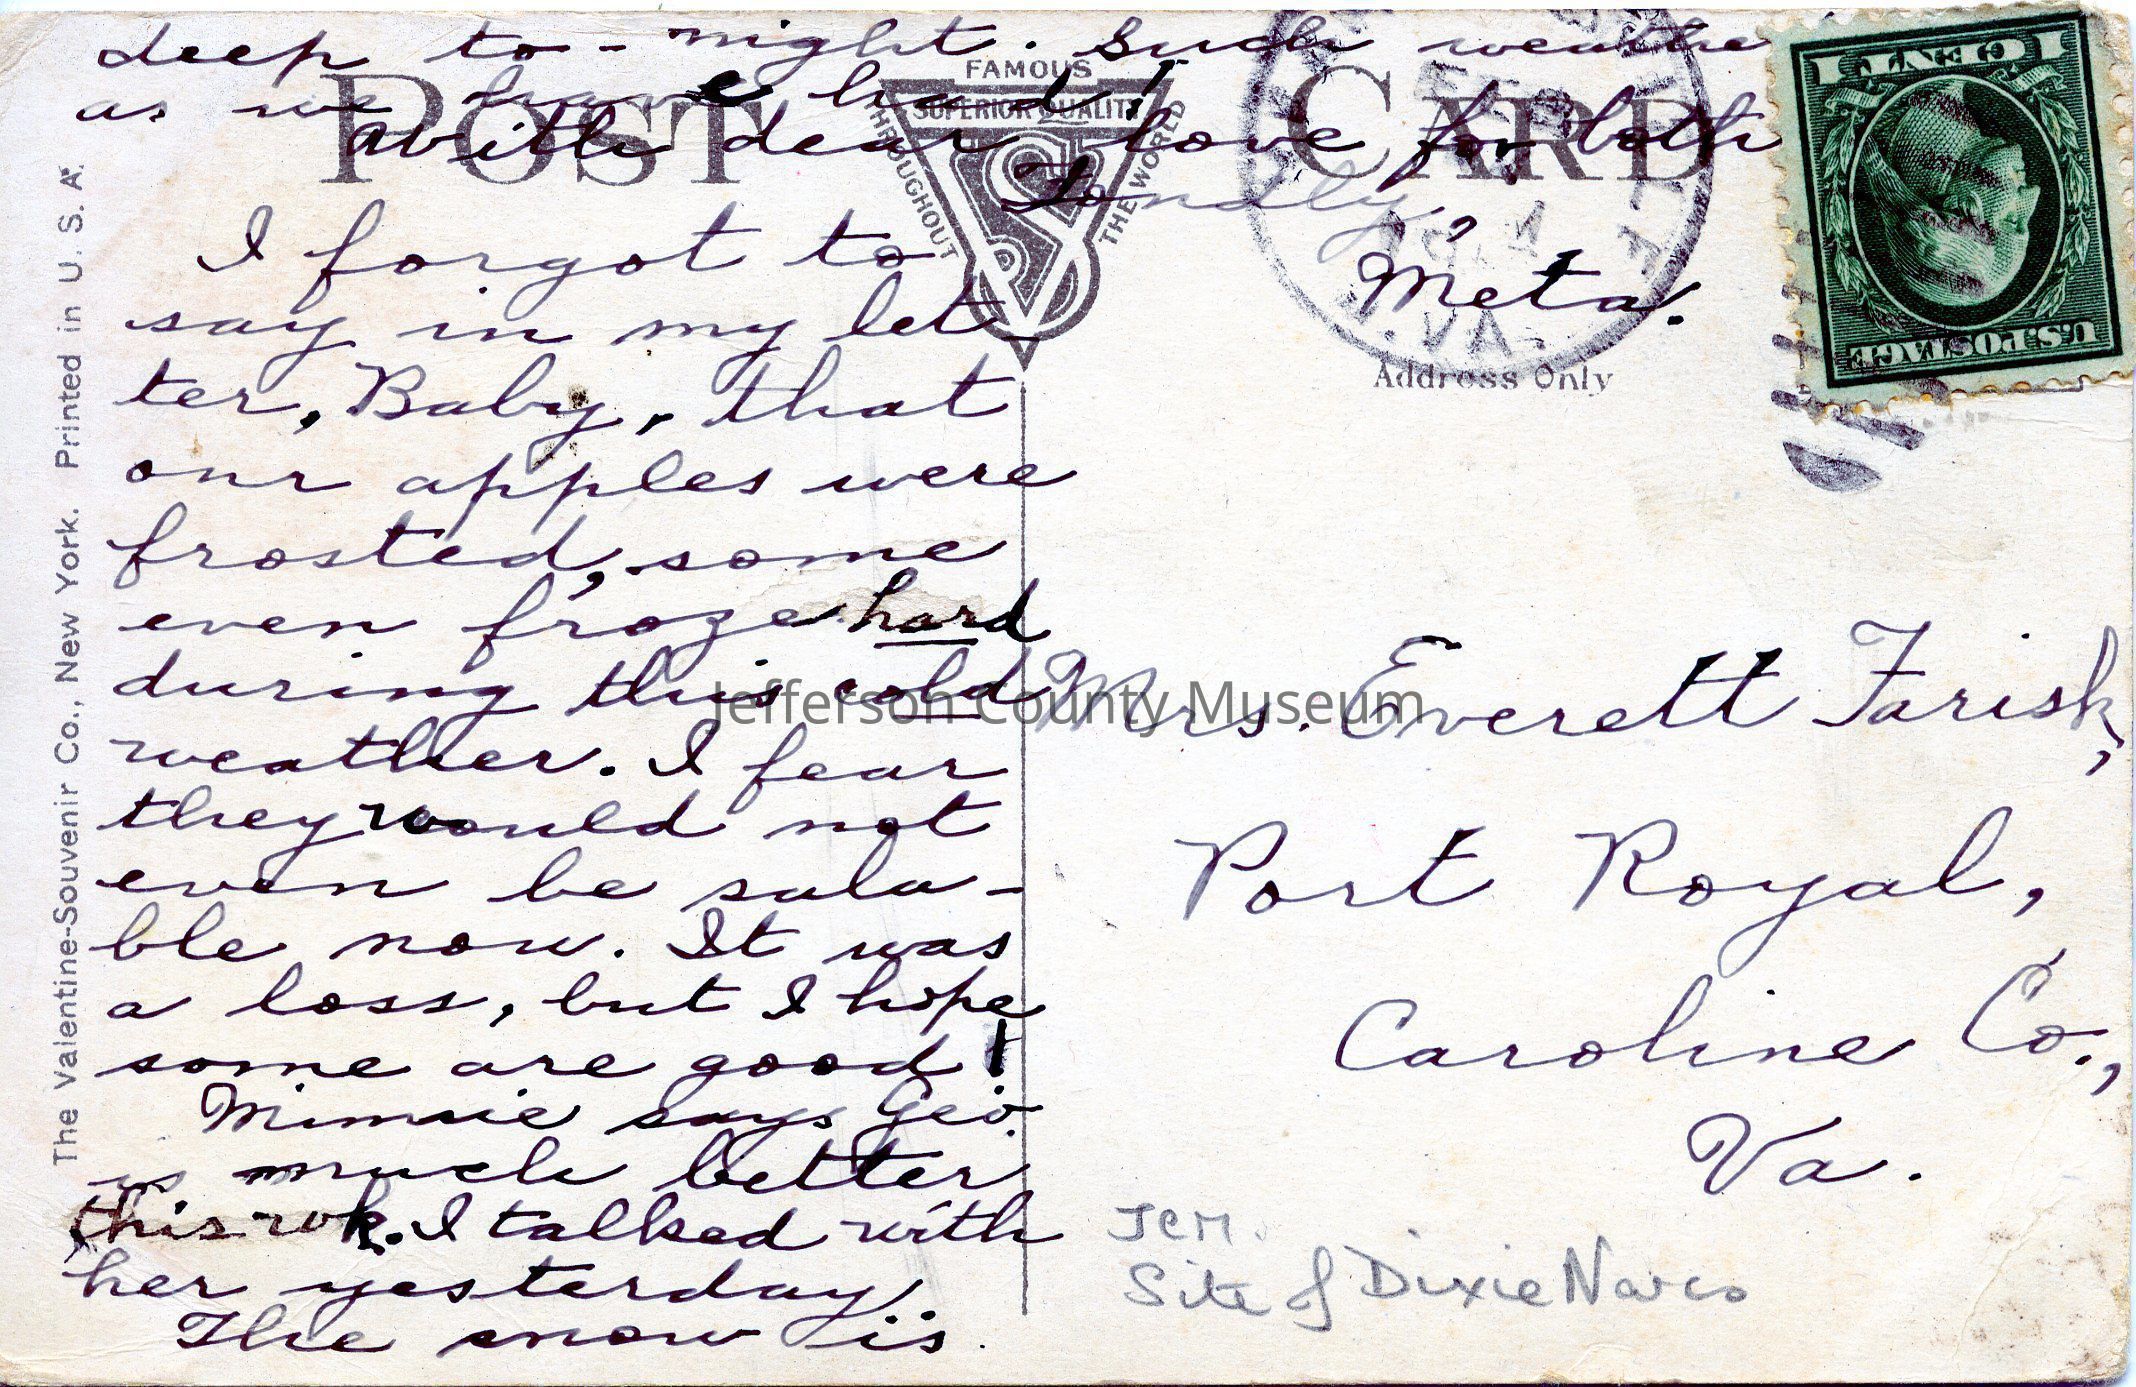 deep to-night. Such weathe
as we have had!
With dear love for both
Fondly,
Meta.
POST CARD
FAMOUS
SUPERIOR QUALITY
THROUGHOUT
THE WORLD
Address Only
1 CENT 1
U.S. POSTAGE
W. VA.
I forgot to
say in my let
ter, Baby, that
our apples were
frosted, some
even froze hard
during this cold
weather. I fear
they would not
even be sala-
ble now. It was
a loss, but I hope
some are good!
Minnie says Geo.
is much better
this wk. I talked with
her yesterday.
The snow is
Mrs. Everett Farish,
Port Royal,
Caroline Co.,
Va.
JCM.
Site of Dixie Narco
The Valentine-Souvenir Co., New York. Printed in U. S. A.
Jefferson County Museum